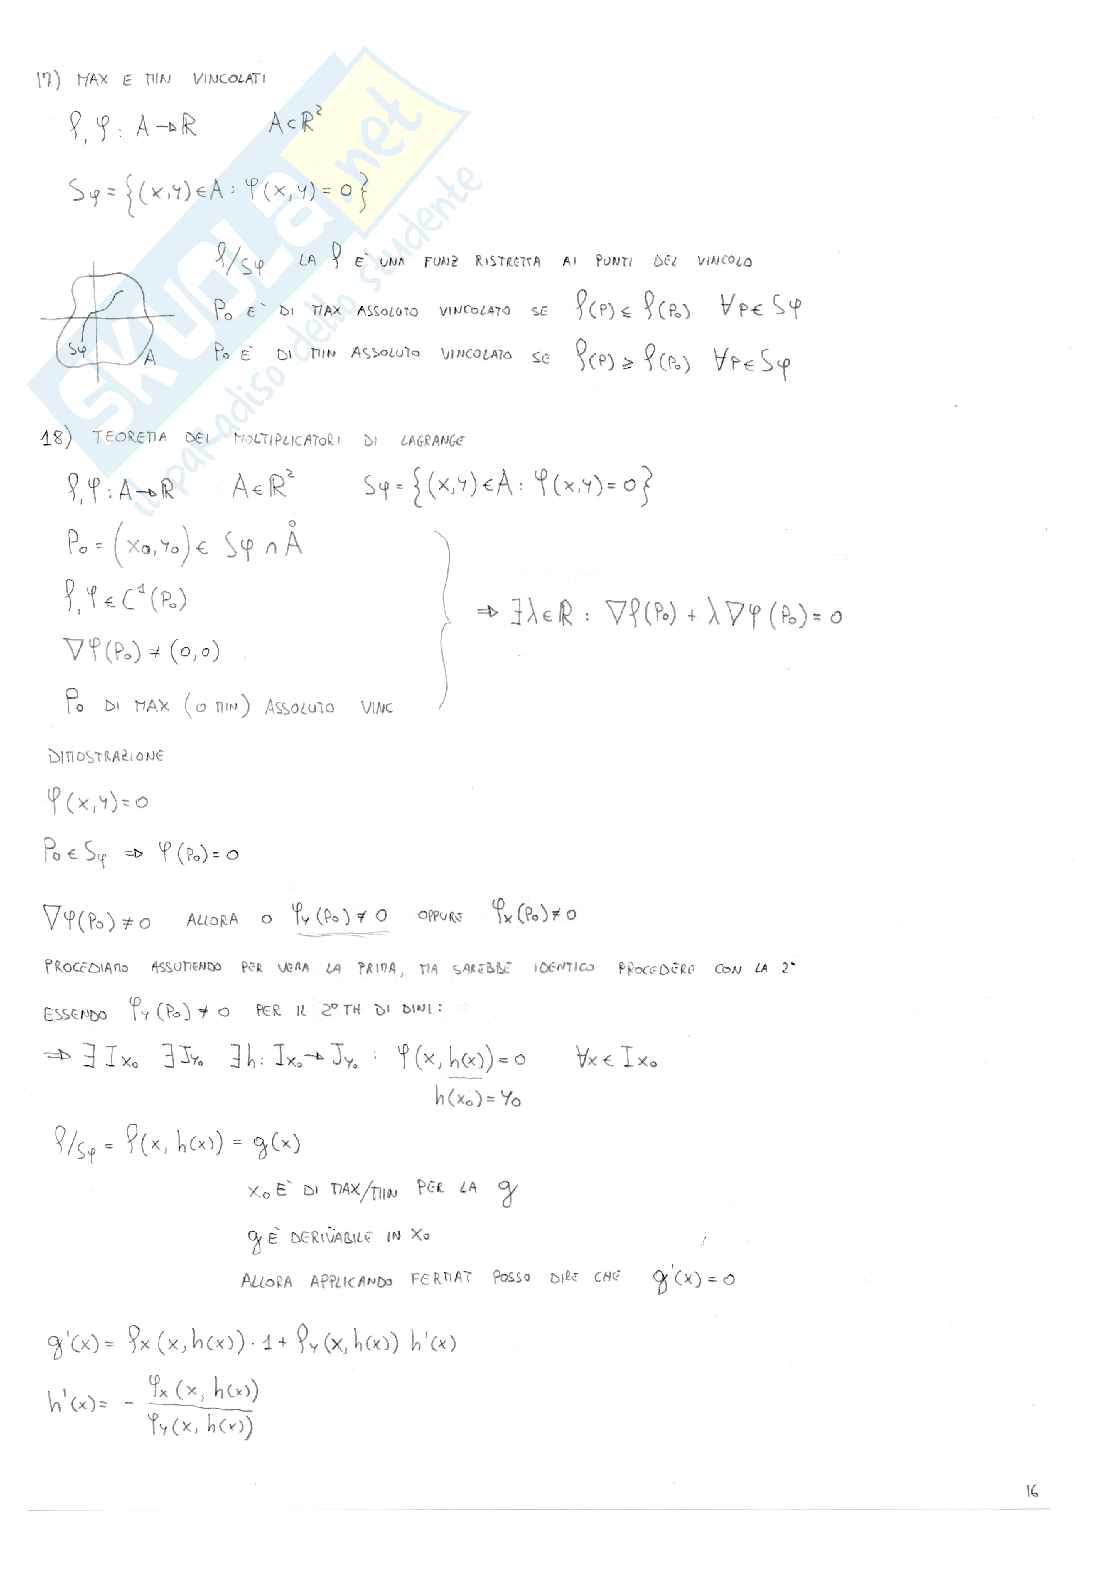 17) MAX E MIN VINCOLATI
f, φ : A → R A ⊂ R²
Sφ = {(x,y) ∈ A : φ(x,y) = 0}
f/Sφ LA f È UNA FUNZ RISTRETTA AI PUNTI DEL VINCOLO
P₀ È DI MAX ASSOLUTO VINCOLATO SE f(P) ≤ f(P₀) ∀P ∈ Sφ
P₀ È DI MIN ASSOLUTO VINCOLATO SE f(P) ≥ f(P₀) ∀P ∈ Sφ
Sφ
A
18) TEOREMA DEI MOLTIPLICATORI DI LAGRANGE
f, φ : A → R A ∈ R² Sφ = {(x,y) ∈ A : φ(x,y) = 0}
P₀ = (x₀, y₀) ∈ Sφ ∩ Å
f, φ ∈ C¹(P₀)
⇒ ∃λ ∈ R : ∇f(P₀) + λ∇φ(P₀) = 0
∇φ(P₀) ≠ (0,0)
P₀ DI MAX (O MIN) ASSOLUTO VINC
DIMOSTRAZIONE
φ(x,y) = 0
P₀ ∈ Sφ ⇒ φ(P₀) = 0
∇φ(P₀) ≠ 0 ALLORA O φy(P₀) ≠ 0 OPPURE φx(P₀) ≠ 0
PROCEDIAMO ASSUMENDO PER VERA LA PRIMA, MA SAREBBE IDENTICO PROCEDERE CON LA 2ª
ESSENDO φy(P₀) ≠ 0 PER IL 2° TH DI DINI:
⇒ ∃ Ix₀ ∃ Jy₀ ∃ h : Ix₀ → Jy₀ : φ(x, h(x)) = 0 ∀x ∈ Ix₀
h(x₀) = y₀
f/Sφ = f(x, h(x)) = g(x)
x₀ È DI MAX/MIN PER LA g
g È DERIVABILE IN x₀
ALLORA APPLICANDO FERMAT POSSO DIRE CHE g'(x) = 0
g'(x) = fx(x, h(x)) · 1 + fy(x, h(x)) h'(x)
h'(x) = - φx(x, h(x)) / φy(x, h(x))
16
SKUOLA.net
il paradiso dello studente